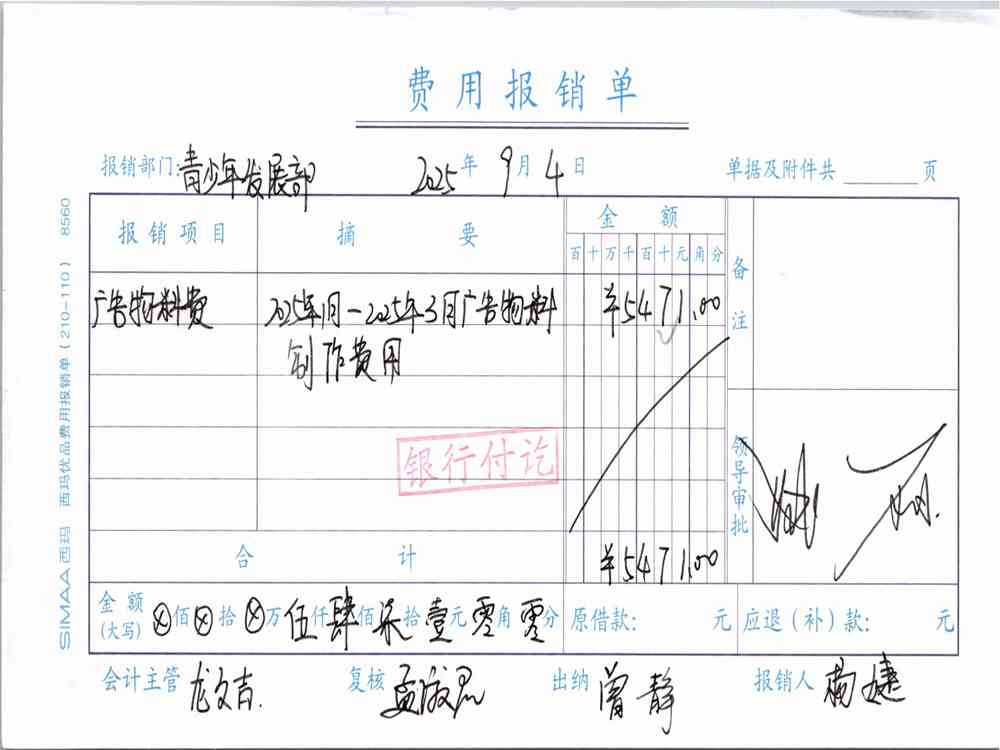 费用报销单
报销部门:青少年发展部 2025年9月4日 单据及附件共 页
报销项目 摘要 金额 备注
百十万千百十元角分
广告物料费 2025年1月-2025年3月广告物料 ¥5471.00
制作费用
银行付讫
领导审批
合计 ¥5471.00
金额(大写) ⊗佰⊗拾⊗万伍仟肆佰柒拾壹元零角零分 原借款: 元 应退(补)款: 元
会计主管 龙文吉. 复核 出纳 曾静 报销人 杨婕
SIMAA西玛 西玛优品费用报销单(210-110) 8560